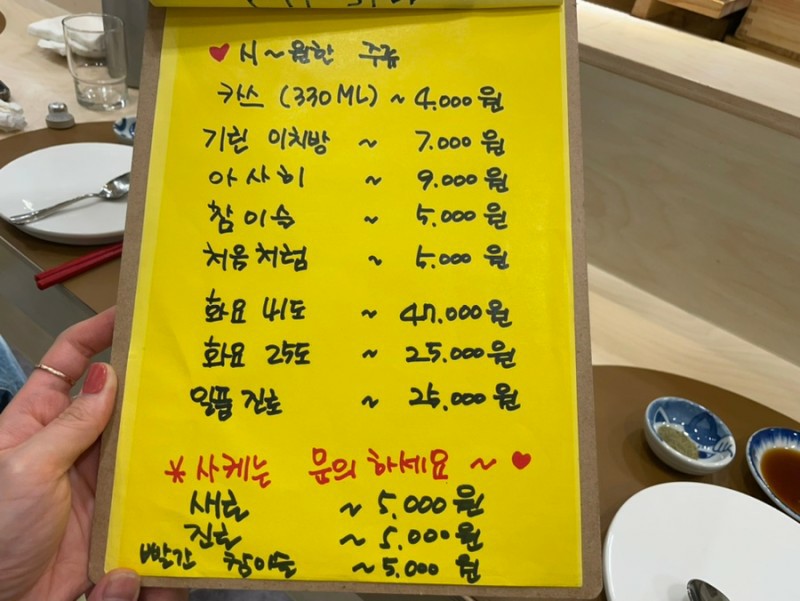 ♥ 시~원한 주류
카스 (330ML) ~ 4.000원
기린 이치방 ~ 7.000원
아사히 ~ 9.000원
참이슬 ~ 5.000원
처음처럼 ~ 5.000원
화요 41도 ~ 47.000원
화요 25도 ~ 25.000원
일품진로 ~ 25.000원
* 사케는 문의 하세요 ~ ♥
새로 ~ 5.000원
진로 ~ 5.000원
빨간 참이슬 ~ 5.000원